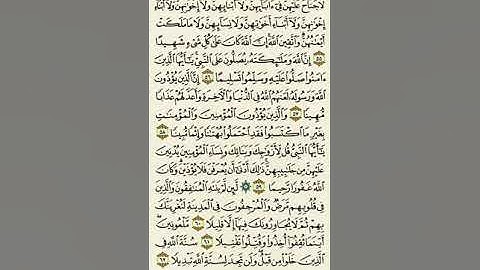 لَّا جُنَاحَ عَلَيْهِنَّ فِي ءَابَآئِهِنَّ وَلَآ أَبْنَآئِهِنَّ وَلَآ إِخْوَٰنِهِنَّ وَلَآ أَبْنَآءِ
إِخْوَٰنِهِنَّ وَلَآ أَبْنَآءِ أَخَوَٰتِهِنَّ وَلَا نِسَآئِهِنَّ وَلَا مَا مَلَكَتْ
أَيْمَٰنُهُنَّ وَٱتَّقِينَ ٱللَّهَ إِنَّ ٱللَّهَ كَانَ عَلَىٰ كُلِّ شَىْءٍ شَهِيدًا
٥٥ إِنَّ ٱللَّهَ وَمَلَٰٓئِكَتَهُۥ يُصَلُّونَ عَلَى ٱلنَّبِيِّ يَٰٓأَيُّهَا ٱلَّذِينَ
ءَامَنُوا۟ صَلُّوا۟ عَلَيْهِ وَسَلِّمُوا۟ تَسْلِيمًا ٥٦ إِنَّ ٱلَّذِينَ يُؤْذُونَ
ٱللَّهَ وَرَسُولَهُۥ لَعَنَهُمُ ٱللَّهُ فِي ٱلدُّنْيَا وَٱلْءَاخِرَةِ وَأَعَدَّ لَهُمْ عَذَابًا
مُّهِينًا ٥٧ وَٱلَّذِينَ يُؤْذُونَ ٱلْمُؤْمِنِينَ وَٱلْمُؤْمِنَٰتِ
بِغَيْرِ مَا ٱكْتَسَبُوا۟ فَقَدِ ٱحْتَمَلُوا۟ بُهْتَٰنًا وَإِثْمًا مُّبِينًا ٥٨
يَٰٓأَيُّهَا ٱلنَّبِيُّ قُل لِّأَزْوَٰجِكَ وَبَنَاتِكَ وَنِسَآءِ ٱلْمُؤْمِنِينَ يُدْنِينَ
عَلَيْهِنَّ مِن جَلَٰبِيبِهِنَّ ذَٰلِكَ أَدْنَىٰٓ أَن يُعْرَفْنَ فَلَا يُؤْذَيْنَ وَكَانَ
ٱللَّهُ غَفُورًا رَّحِيمًا ٥٩ لَّئِن لَّمْ يَنتَهِ ٱلْمُنَٰفِقُونَ وَٱلَّذِينَ
فِي قُلُوبِهِم مَّرَضٌ وَٱلْمُرْجِفُونَ فِي ٱلْمَدِينَةِ لَنُغْرِيَنَّكَ
بِهِمْ ثُمَّ لَا يُجَاوِرُونَكَ فِيهَآ إِلَّا قَلِيلًا ٦٠ مَّلْعُونِينَ
أَيْنَمَا ثُقِفُوٓا۟ أُخِذُوا۟ وَقُتِّلُوا۟ تَقْتِيلًا ٦١ سُنَّةَ ٱللَّهِ فِي
ٱلَّذِينَ خَلَوْا۟ مِن قَبْلُ وَلَن تَجِدَ لِسُنَّةِ ٱللَّهِ تَبْدِيلًا ٦٢